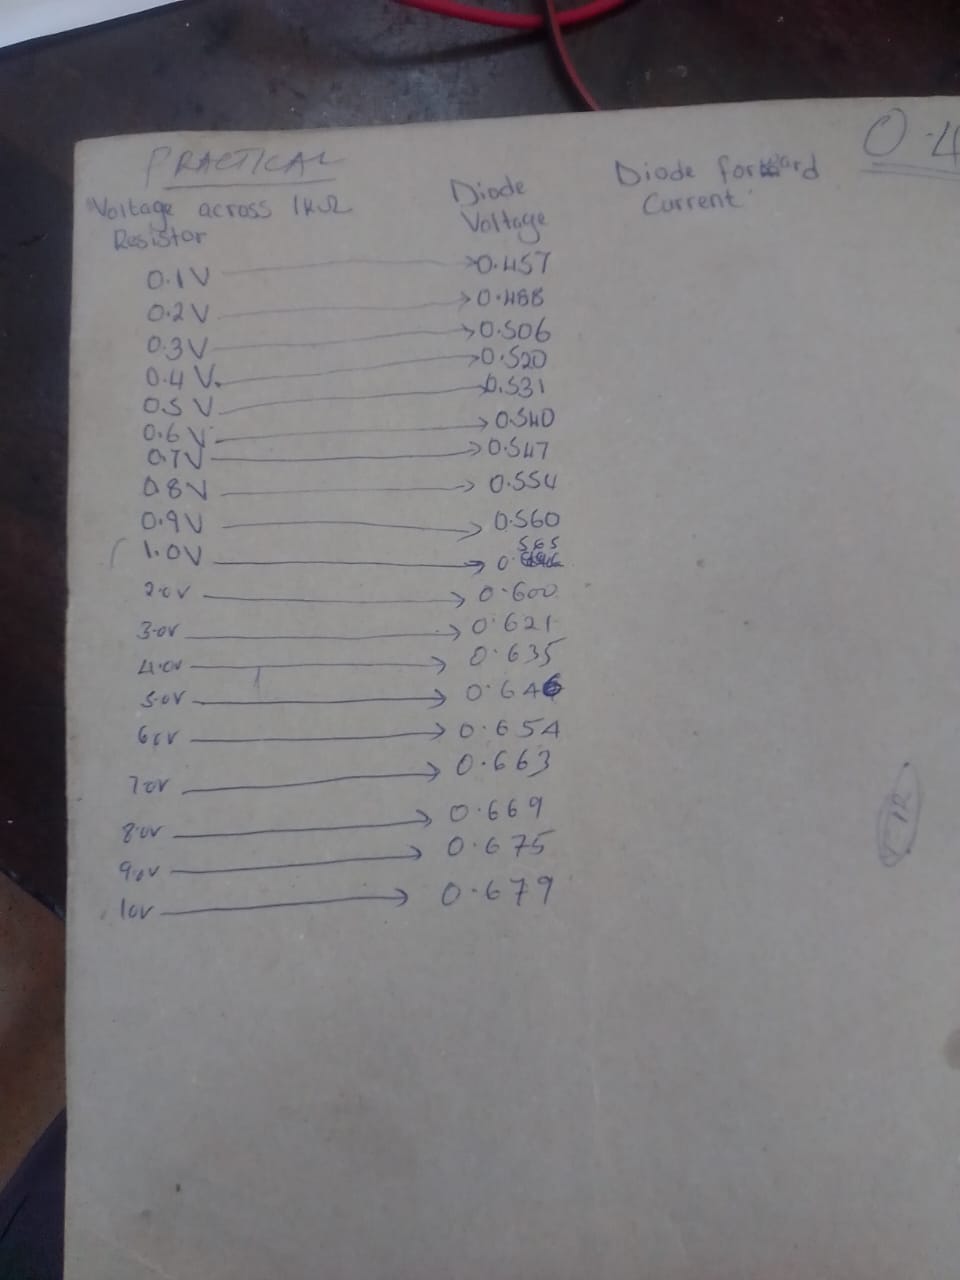 PRACTICAL
0.4
Voltage across 1kΩ Resistor
Diode Voltage
Diode forward Current
0.1V → 0.457
0.2V → 0.488
0.3V → 0.506
0.4V → 0.520
0.5V → 0.531
0.6V → 0.540
0.7V → 0.547
0.8V → 0.554
0.9V → 0.560
1.0V → 0.565
2.0V → 0.600
3.0V → 0.621
4.0V → 0.635
5.0V → 0.646
6.0V → 0.654
7.0V → 0.663
8.0V → 0.669
9.0V → 0.675
10V → 0.679